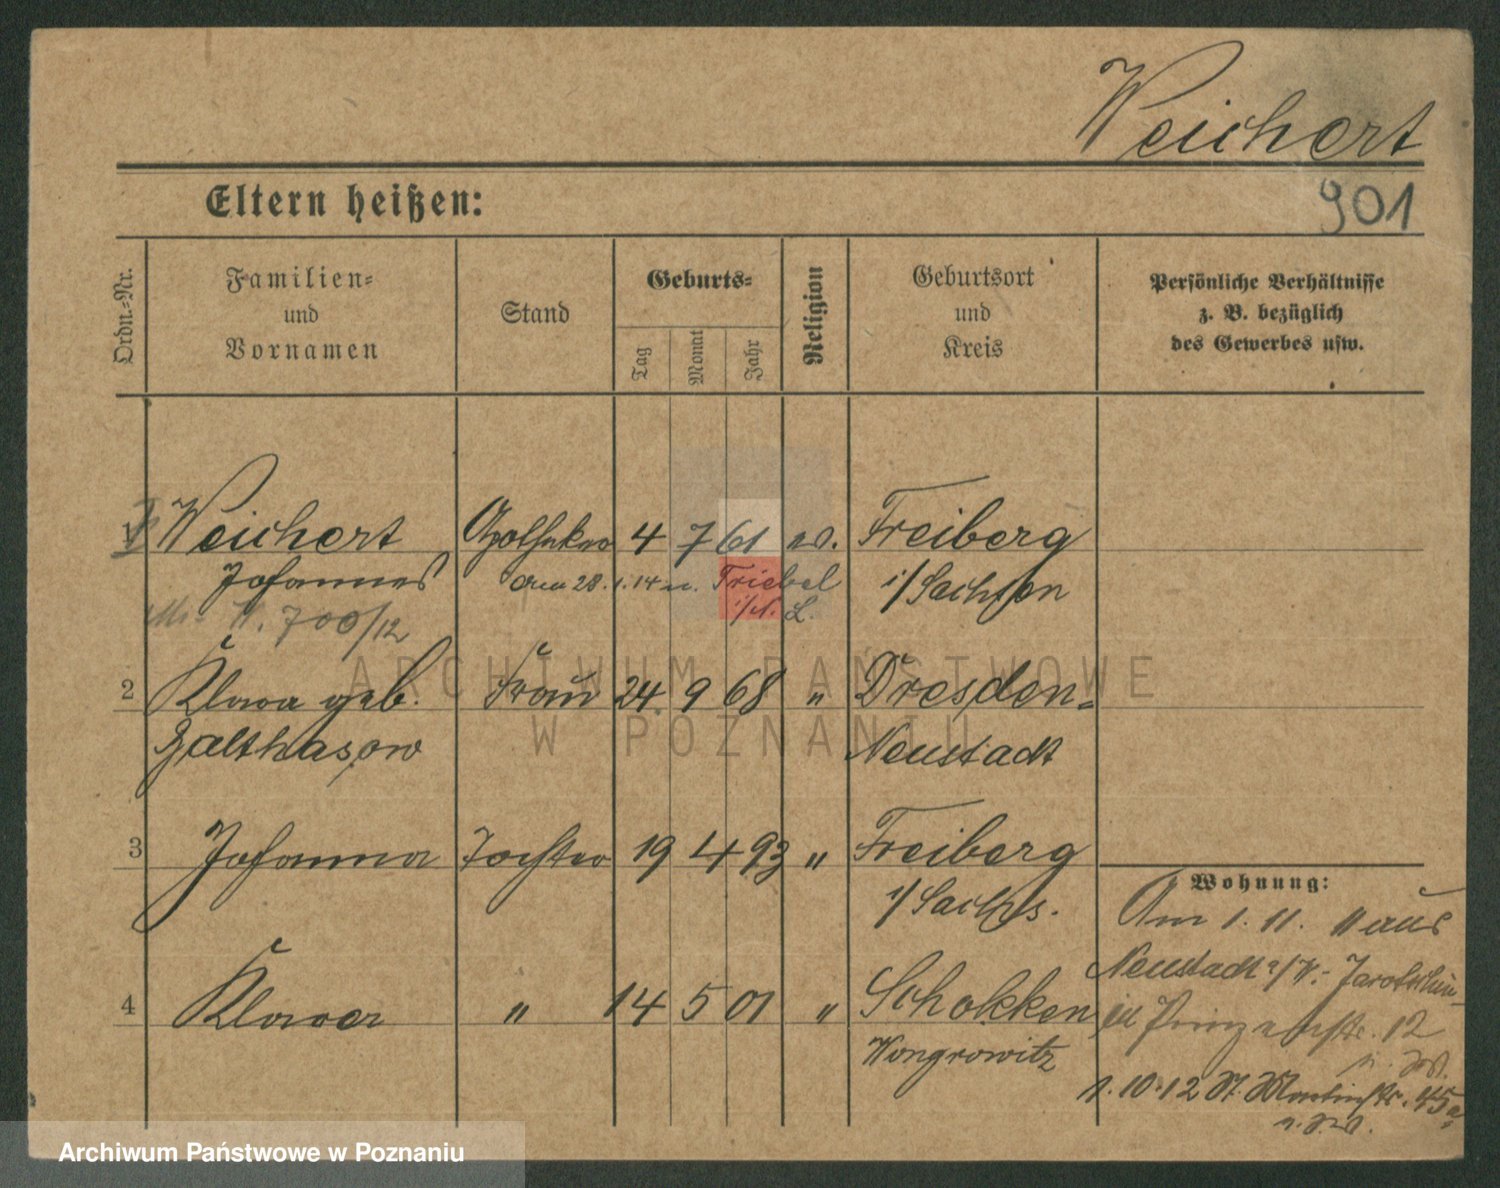 Weichert
901
Eltern heißen:
Ordn.-Nr.
Familien-
und
Vornamen
Stand
Geburts-
Tag
Monat
Jahr
Religion
Geburtsort
und
Kreis
Persönliche Verhältnisse
z. B. bezüglich
des Gewerbes usw.
1 Weichert Apotheker 4 7 61 ev. Freiberg
Johannes am 28. 1. 14 n. Triebel i/Sachsen
i/N. L.
W. 700/12
2 Klara geb. Frau 24. 9 68 " Dresden-
Balthasar Neustadt
3 Johanna Tochter 19 4 93 " Freiberg
i/Sachs.
4 Klara " 14 5 01 " Schokken
Wongrowitz
Wohnung:
Am 1. 11. 11 aus
Neustadt a/W. - Jarotschin
12
1. 10. 12 St. Martinstr. 45a
ARCHIWUM PAŃSTWOWE
W POZNANIU
Archiwum Państwowe w Poznaniu